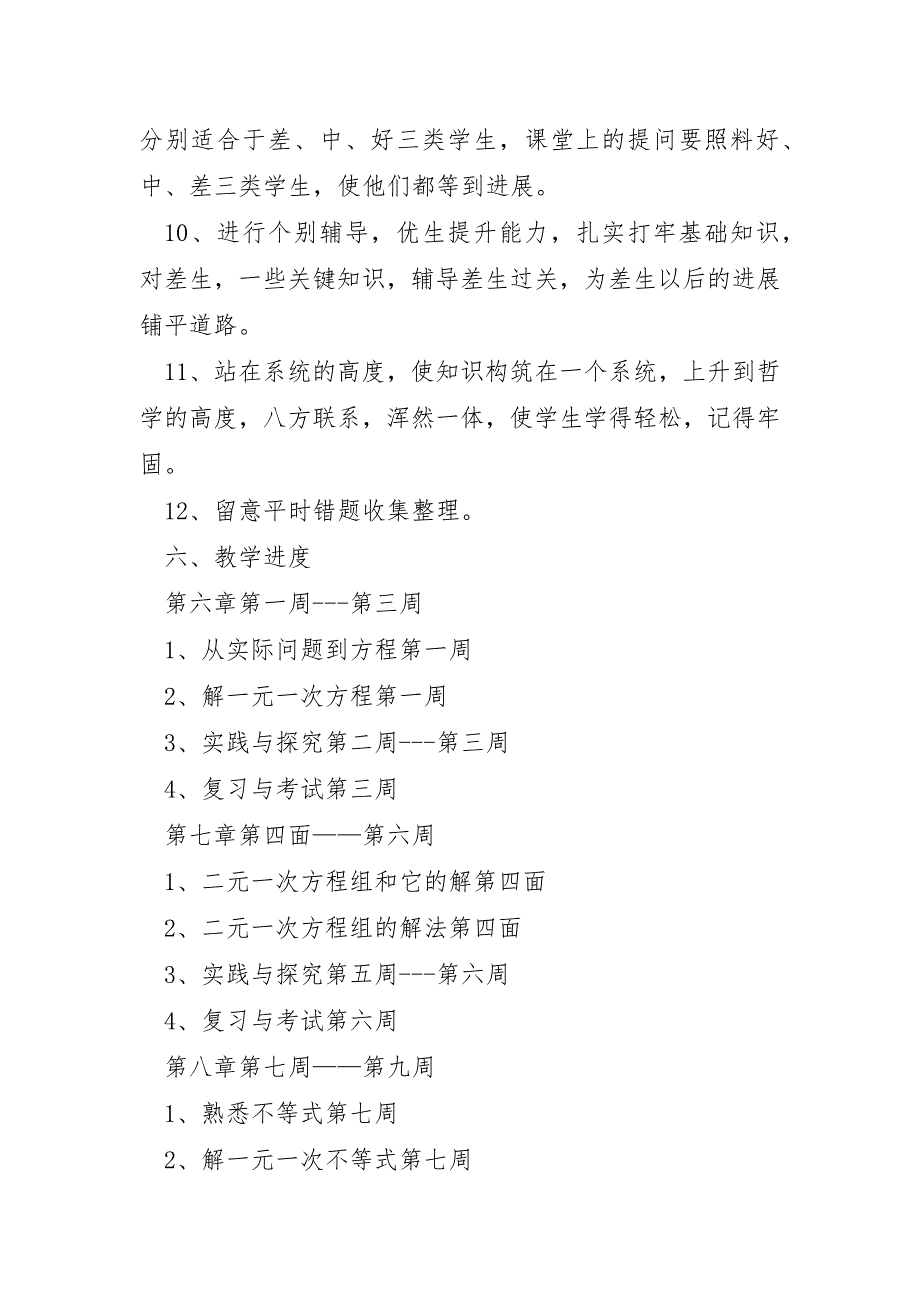 分别适合于差、中、好三类学生，课堂上的提问要照料好、
中、差三类学生，使他们都等到进展。
10、进行个别辅导，优生提升能力，扎实打牢基础知识，
对差生，一些关键知识，辅导差生过关，为差生以后的进展
铺平道路。
11、站在系统的高度，使知识构筑在一个系统，上升到哲
学的高度，八方联系，浑然一体，使学生学得轻松，记得牢
固。
12、留意平时错题收集整理。
六、教学进度
第六章第一周---第三周
1、从实际问题到方程第一周
2、解一元一次方程第一周
3、实践与探究第二周---第三周
4、复习与考试第三周
第七章第四面——第六周
1、二元一次方程组和它的解第四面
2、二元一次方程组的解法第四面
3、实践与探究第五周---第六周
4、复习与考试第六周
第八章第七周——第九周
1、熟悉不等式第七周
2、解一元一次不等式第七周